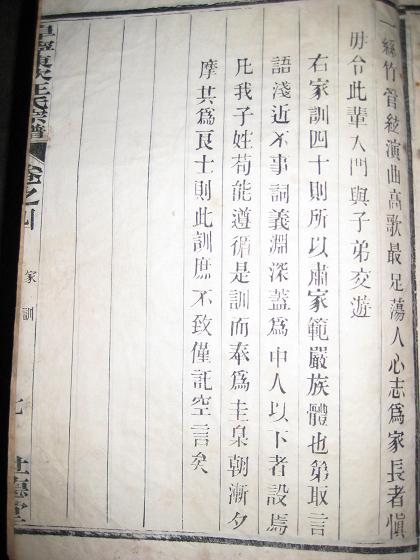 一絲竹管絃演曲高歌最足蕩人心志爲家長者愼
毋令此輩入門與子弟交遊
右家訓四十則所以肅家範嚴族體也第取言
語淺近不事詞義淵深蓋爲中人以下者設焉
凡我子姓苟能遵循是訓而奉爲圭臬朝漸夕
摩共爲良士則此訓庶不致僅託空言矣
東汝王氏宗譜
卷之四
家訓
七